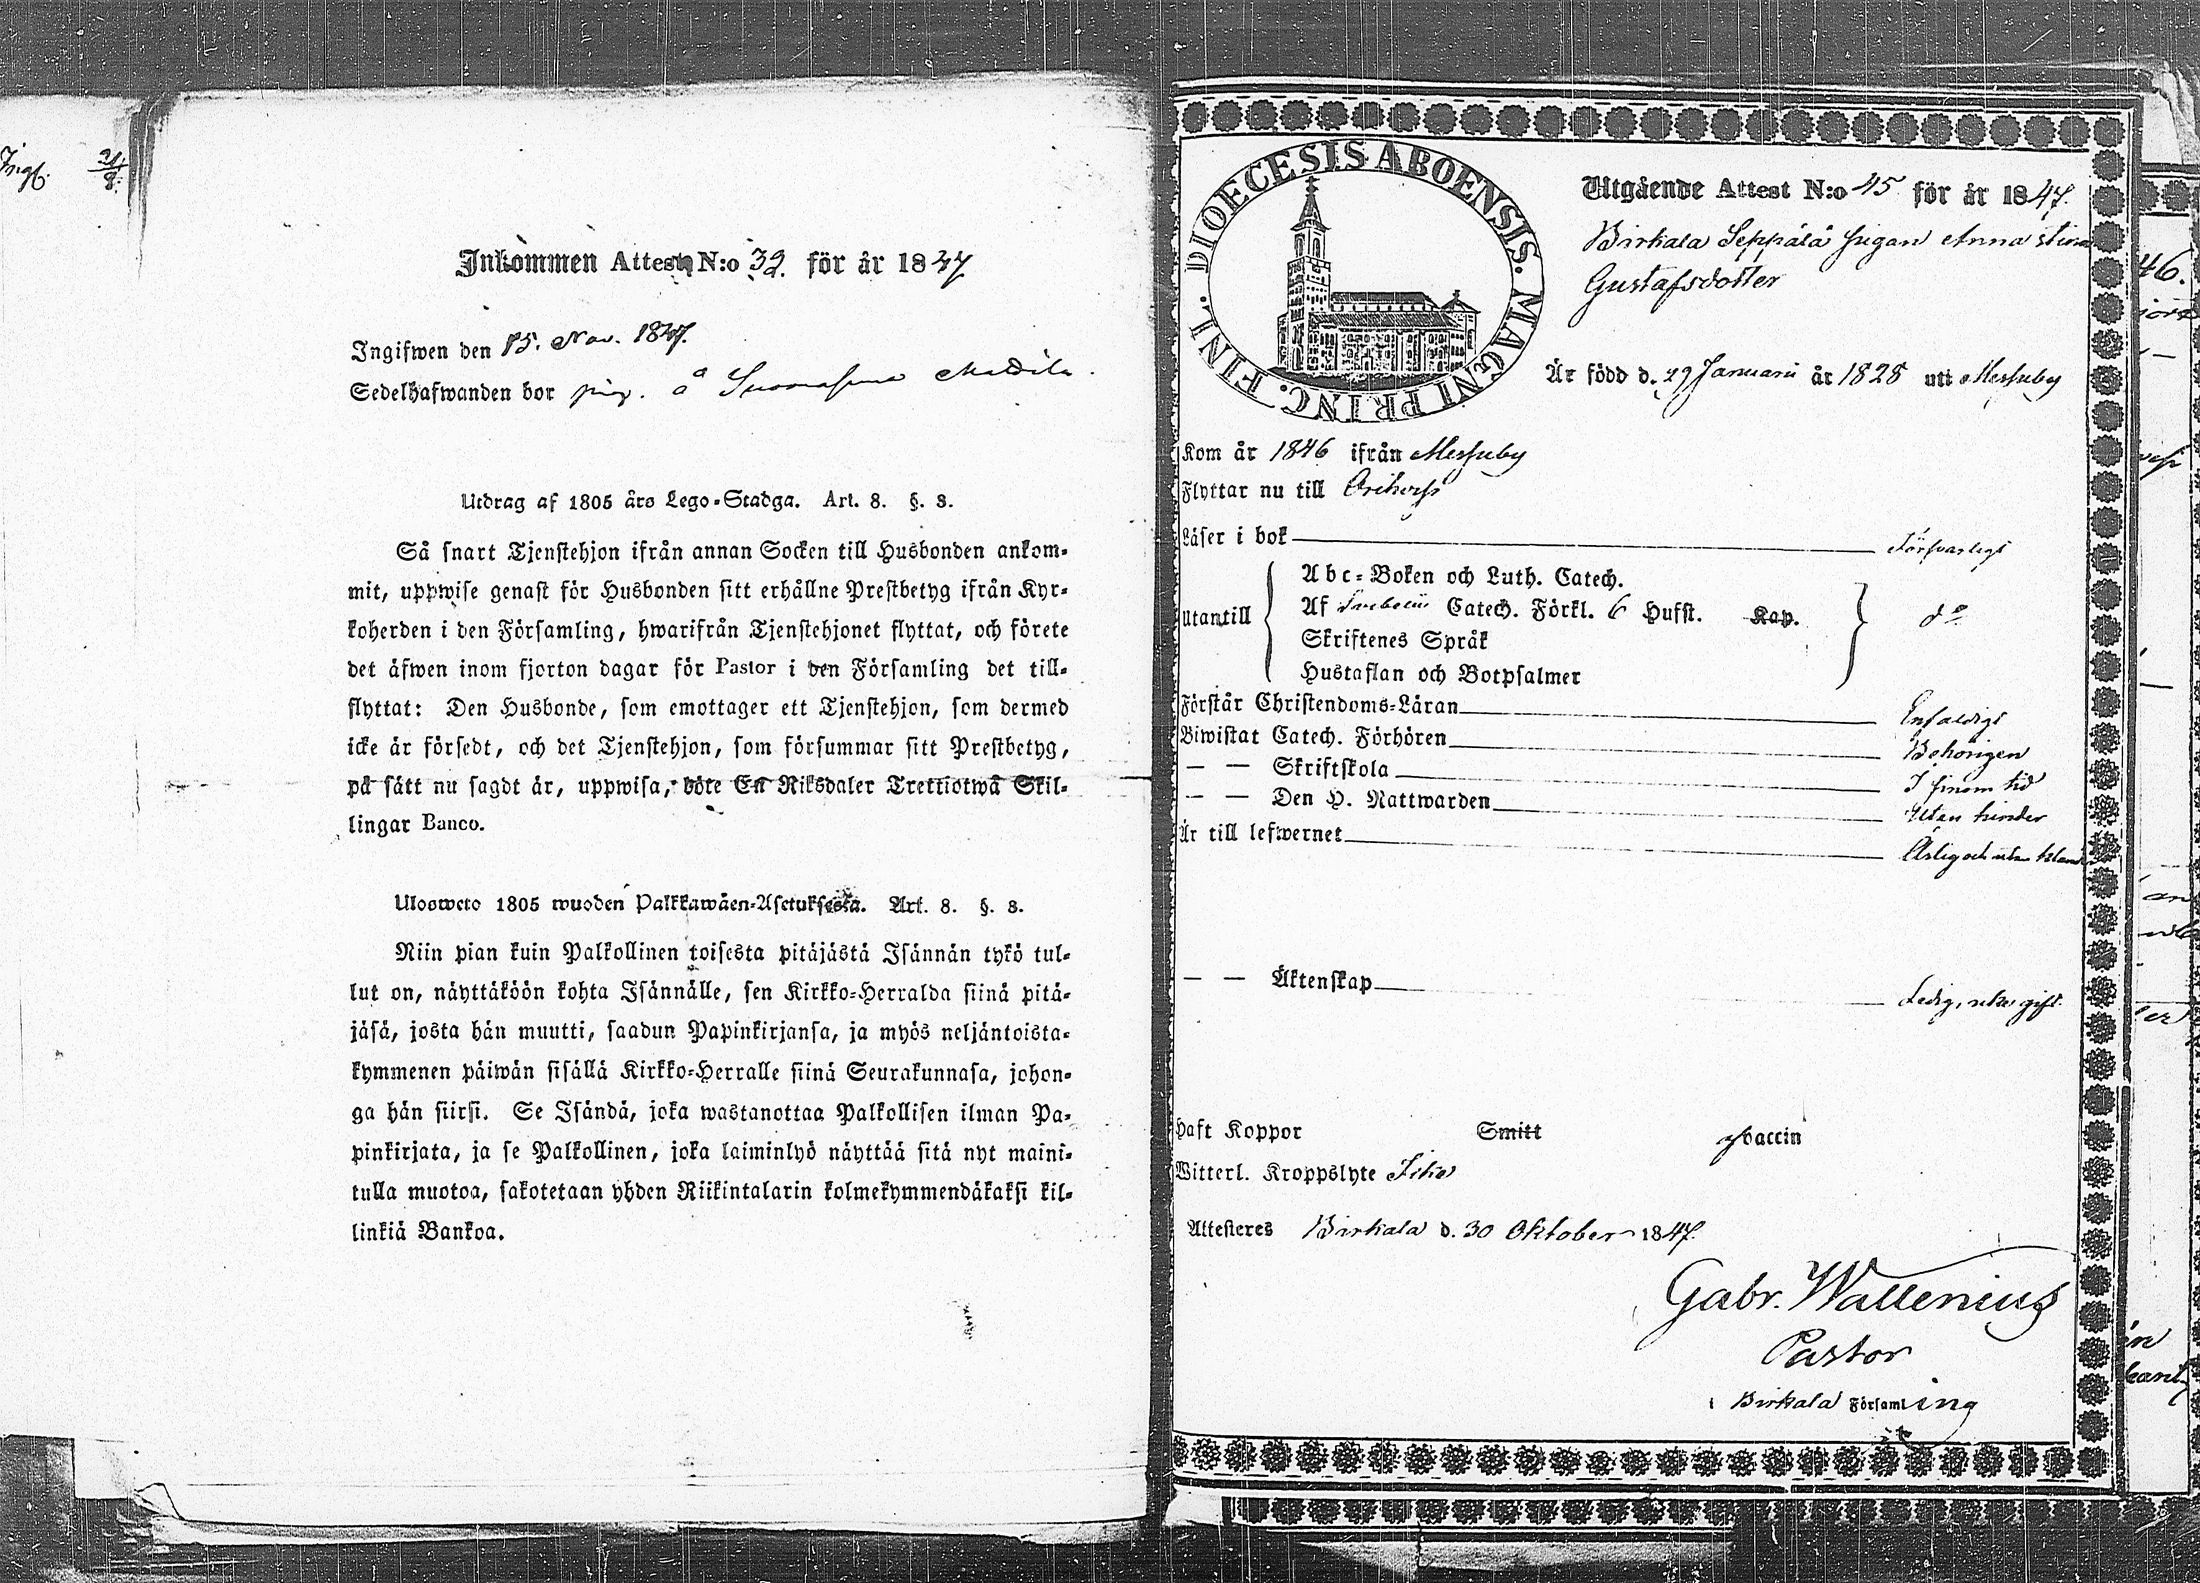 Ingf. 21/8.
Inkommen Attest N:o 32. för år 1847
Ingifwen den 15. Nov. 1847.
Sedelhafwanden bor pig. å
Utdrag af 1805 års Lego-Stadga. Art. 8. §. 8.
Så snart Tjenstehjon ifrån annan Socken till Husbonden ankom-
mit, uppwise genast för Husbonden sitt erhållne Prestbetyg ifrån Kyr-
koherden i den Församling, hwarifrån Tjenstehjonet flyttat, och förete
det äfwen inom fjorton dagar för Pastor i den Församling det till-
flyttat: Den Husbonde, som emottager ett Tjenstehjon, som dermed
icke är försedt, och det Tjenstehjon, som försummar sitt Prestbetyg,
på sätt nu sagdt är, uppwisa, böte En Riksdaler Trettiotwå Skil-
lingar Banco.
Ulosweto 1805 wuoden Palkkawäen-Asetuksesta. Art. 8. §. 8.
Niin pian kuin Palkollinen toisesta pitäjästä Isännän tykö tul-
lut on, näyttäköön kohta Isännälle, sen Kirkko-Herralda siinä pitä-
jäsä, josta hän muutti, saadun Papinkirjansa, ja myös neljäntoista-
kymmenen päiwän sisällä Kirkko-Herralle siinä Seurakunnasa, johon-
ga hän siirsi. Se Isändä, joka wastanottaa Palkollisen ilman Pa-
pinkirjata, ja se Palkollinen, joka laiminlyö näyttää sitä nyt maini-
tulla muotoa, sakotetaan yhden Riikintalarin kolmekymmendäkaksi kil-
linkiä Bankoa.
DIOECESIS ABOENSIS. MAGNI PRINC. FINL.
Utgående Attest N:o 45 för år 1847.
Birkala Seppälä pigan Anna Stina
Gustafsdotter
Är född d. 29 Januarii år 1828 uti Messuby
Kom år 1846 ifrån Messuby
Flyttar nu till Orihvesi
Läser i bok Försvarligt
utantill
Abc-Boken och Luth. Catech.
Af Svebelii Catech. Förkl. 6 Hufst. Kap. do
Skriftenes Språk
Hustaflan och Botpsalmer
Förstår Christendoms-Läran Enfaldigt
Biwistat Catech. Förhören Behörigen
— — Skriftskola I sinom tid
— — Den H. Nattwarden Utan hinder
Är till lefwernet Ärlig och utan
— — Äktenskap Ledig, icke gift.
Haft Koppor Smitt vaccin
Witterl. Kroppslyte Icke
Attesteres Birkala d. 30 Oktober 1847.
Gabr. Wallenius
Pastor
i Birkala Församling